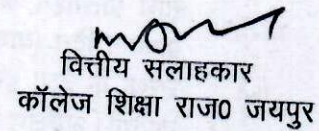 वित्तीय सलाहकार
कॉलेज शिक्षा राज0 जयपुर